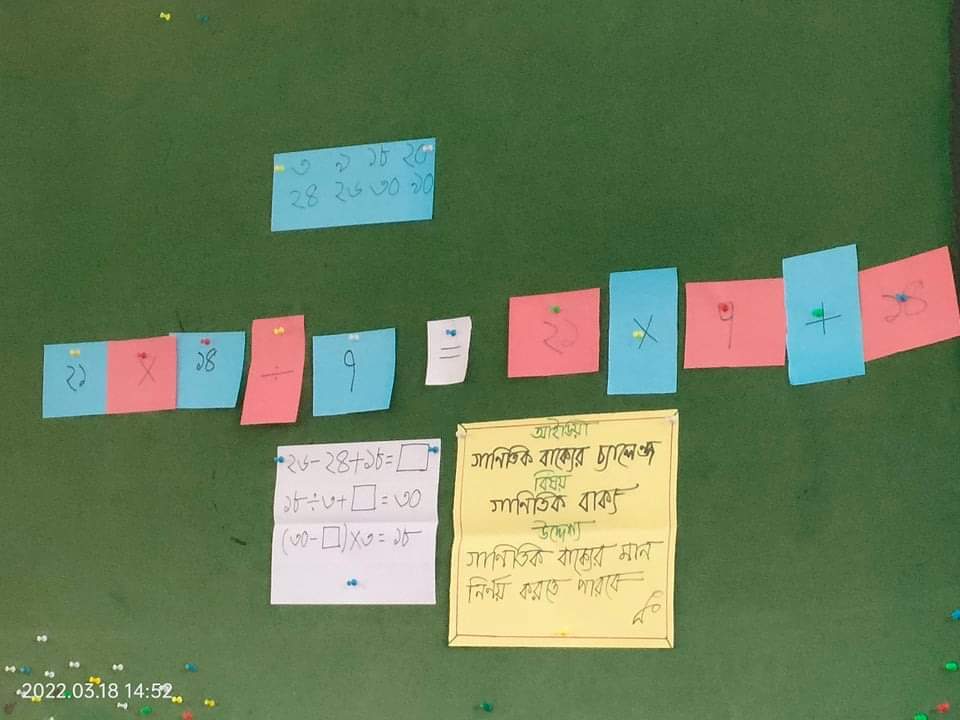 ৩ ৯ ১৮
২৪ ২৬ ৩০ ১০
২১ × ১৪ ÷ ৭ = ২১ × ৭ +
২৬-২৪+১৮=□
১৮÷৩+□=৩০
(৩০-□)×৩=১৮
আইডিয়া
গাণিতিক বাক্যের চ্যালেঞ্জ
বিষয়
গাণিতিক বাক্য
উদ্দেশ্য
গাণিতিক বাক্যের মান
নির্ণয় করতে পারবে
2022.03.18 14:52